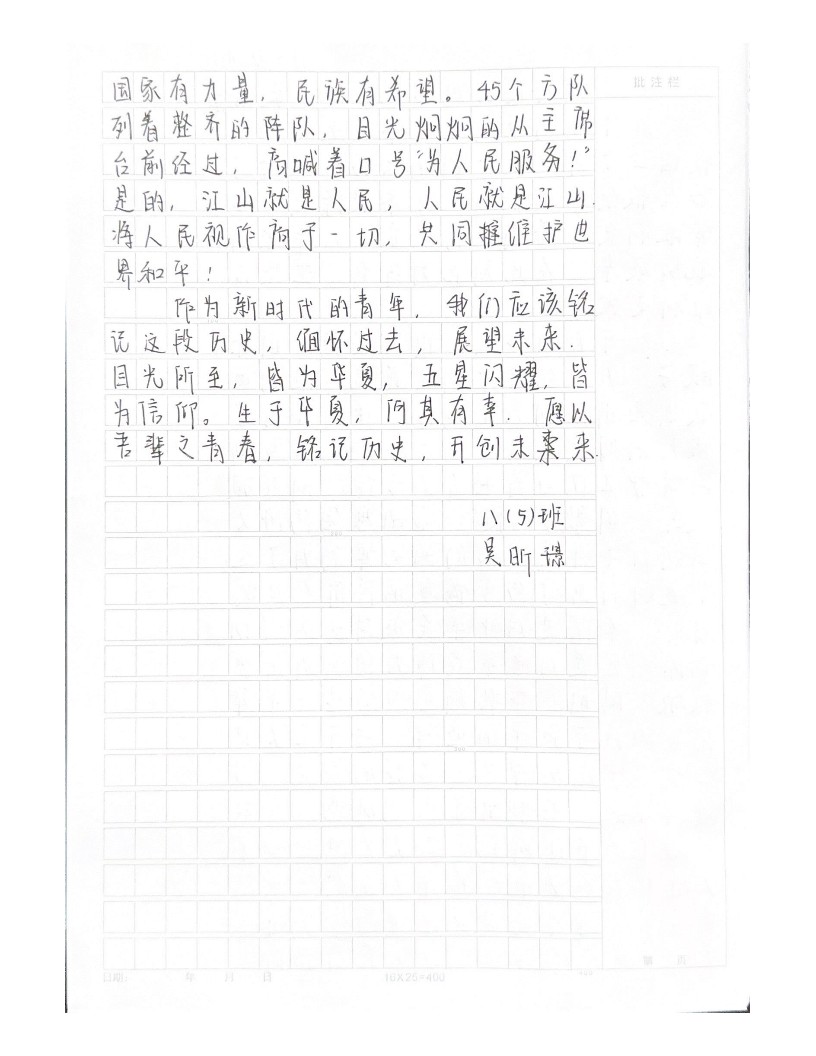 批注栏
国家有力量，民族有希望。45个方队
列着整齐的阵队，目光炯炯的从主席
台前经过，高喊着口号“为人民服务！”
是的，江山就是人民，人民就是江山.
将人民视作高于一切，共同维护世
界和平！
作为新时代的青年，我们应该铭
记这段历史，缅怀过去，展望未来.
目光所至，皆为华夏，五星闪耀，皆
为信仰。生于华夏，何其有幸. 愿以
吾辈之青春，铭记历史，开创未来.
八(5)班
吴昕璟
日期： 年 月 日 16X25=400
第 页